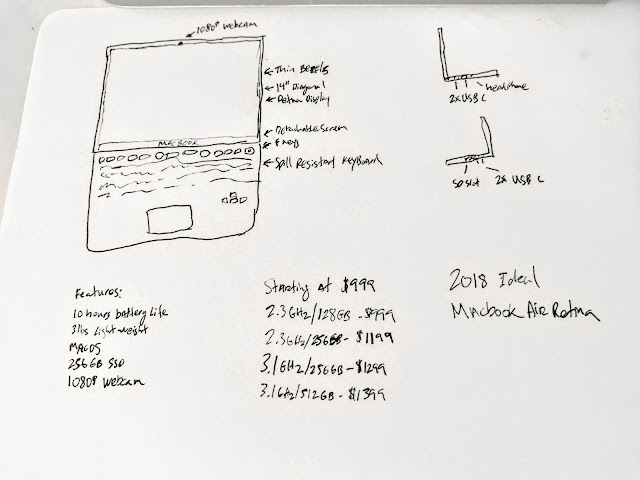 1080P Webcam
Thin Bezels
14" Diagonal
Retina Display
Detachable Screen
F keys
Spill Resistant Keyboard
MACBOOK
headphone
2x USB C
SD slot
2x USB C
Features:
10 hours battery Life
3lbs Light weight
MACOS
256GB SSD
1080P Webcam
Starting At $999
2.3GHz/128GB - $999
2.3GHz/256GB - $1199
3.1GHz/256GB - $1299
3.1GHz/512GB - $1399
2018 Ideal
Macbook Air Retina